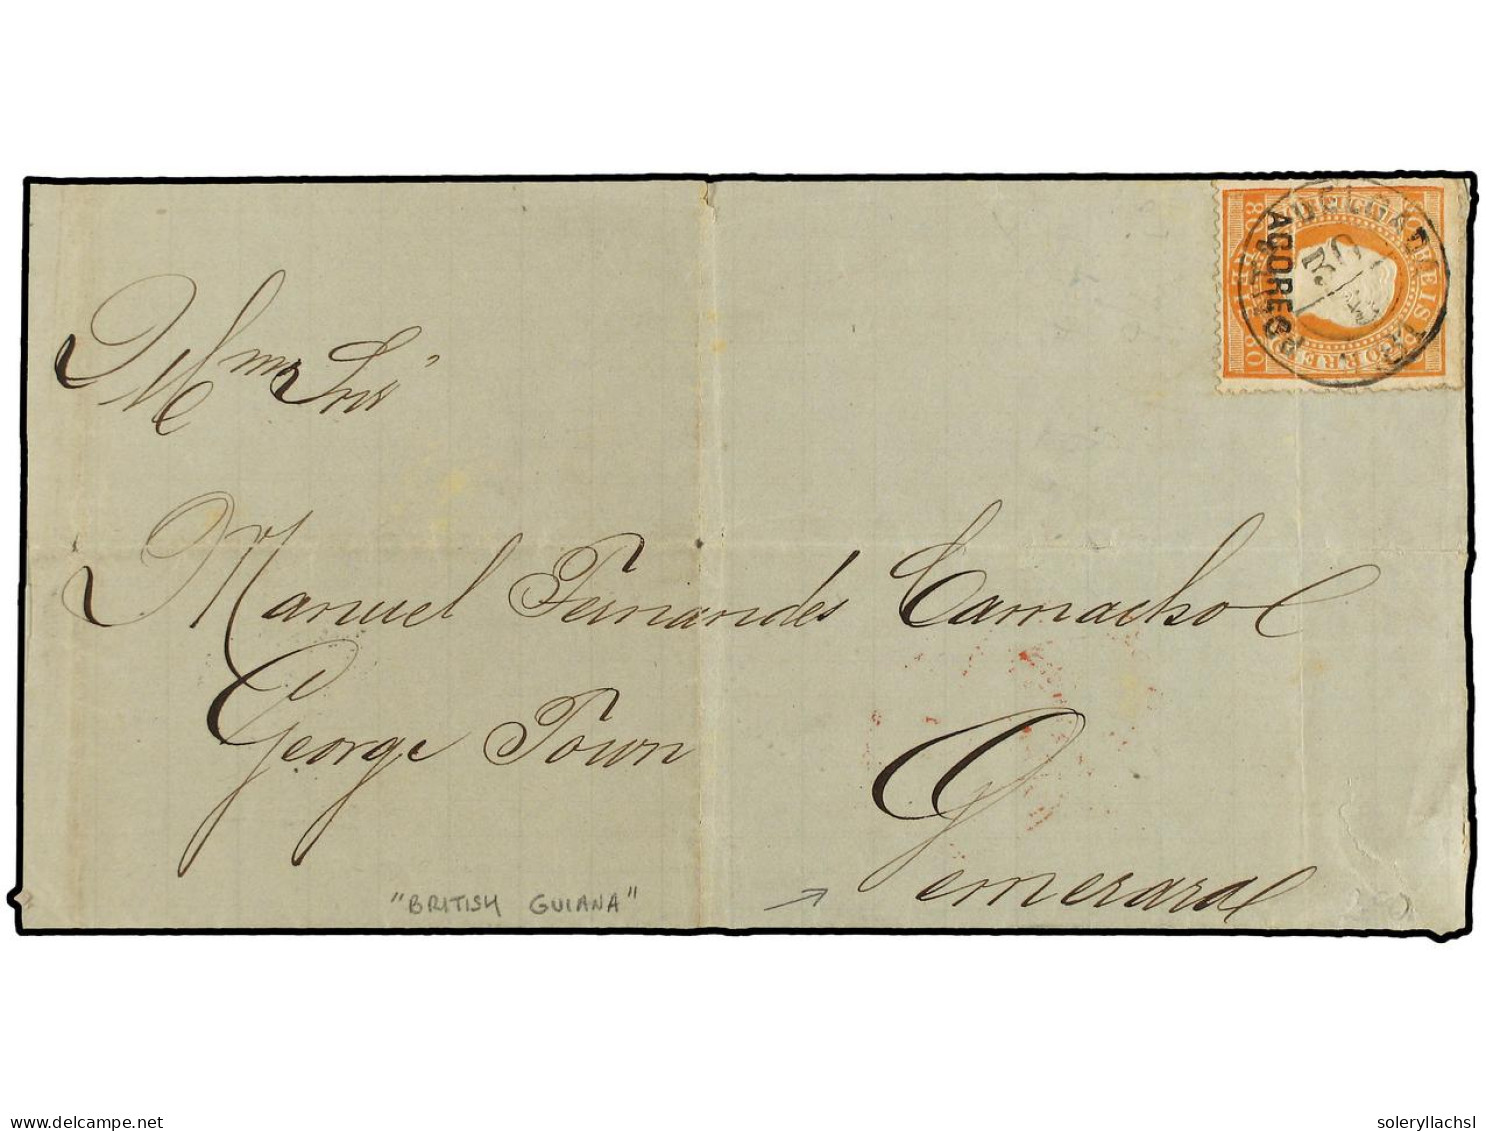 CORREIS
AÇORES
DELGADA
80
Illmo Snr
Manuel Fernandes Camacho
George Town
Demerara
"BRITISH GUIANA"
delcampe.net
soleryllachsl